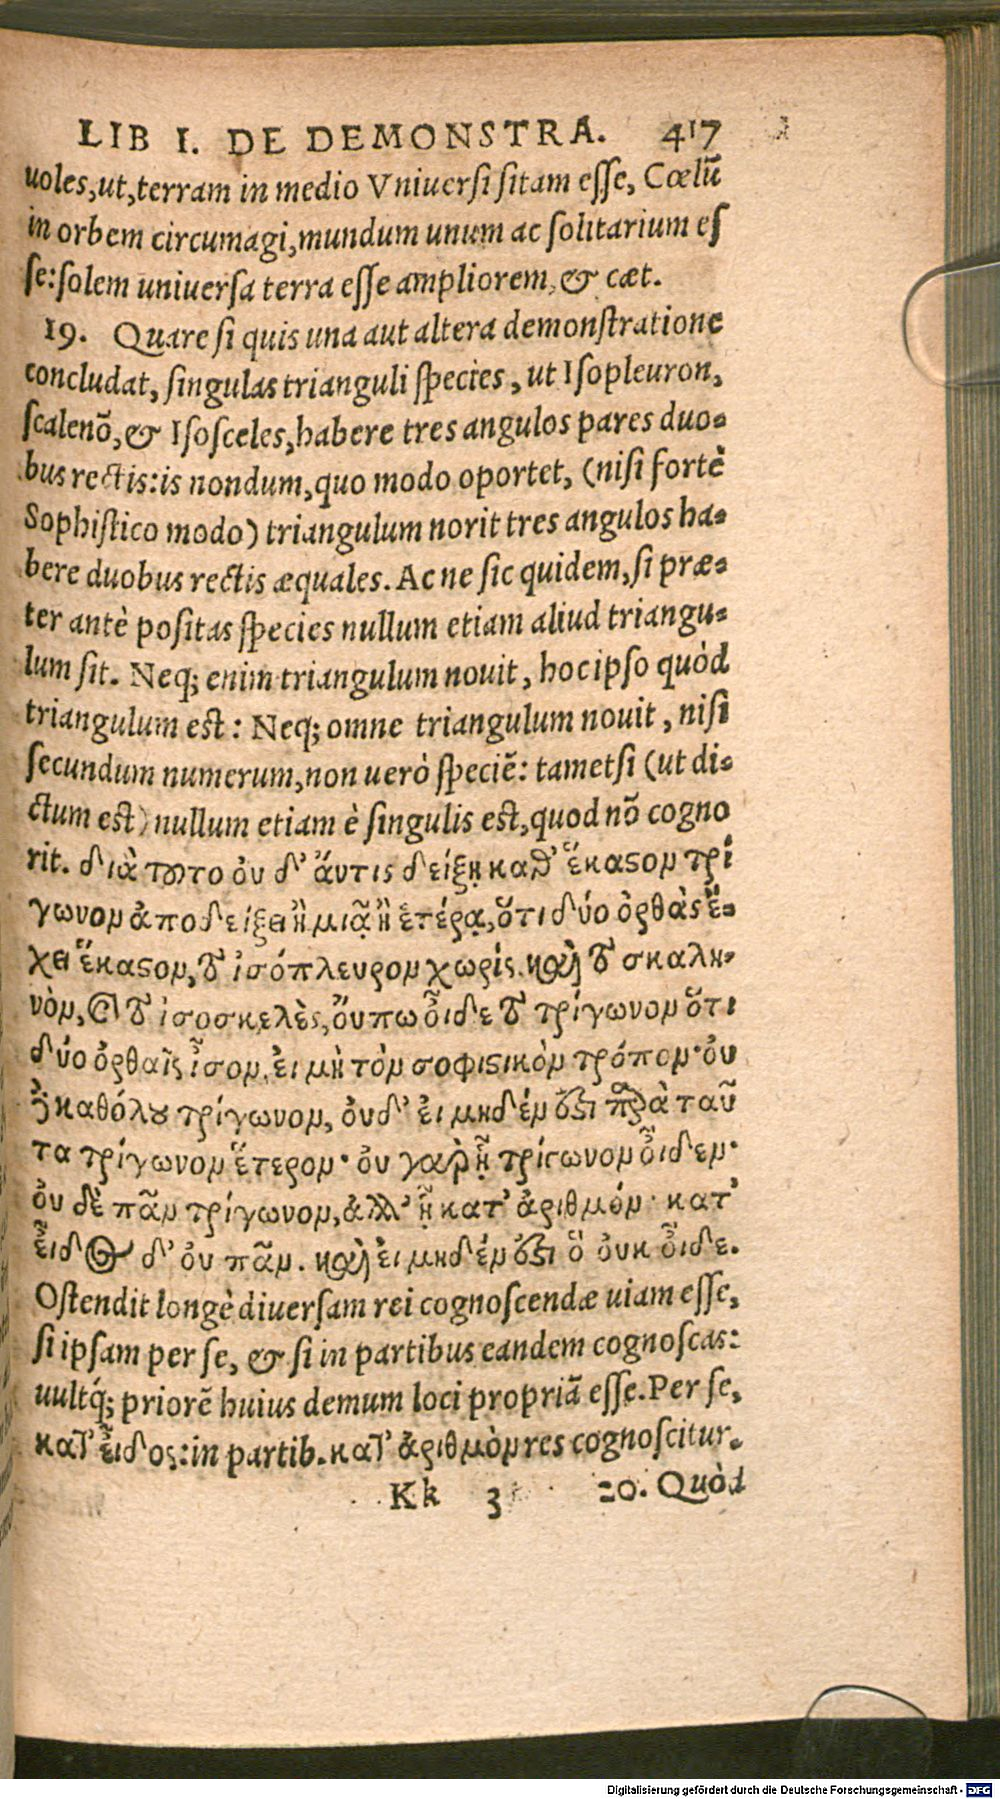 LIB I. DE DEMONSTRA. 417
uoles,ut,terram in medio Vniuersi sitam esse, Cœlũ
in orbem circumagi,mundum unum ac solitarium es
se:solem uniuersa terra esse ampliorem, & cæt.
19. Quare si quis una aut altera demonstratione
concludat, singulas trianguli species, ut Isopleuron,
scalenõ,& Isosceles,habere tres angulos pares duo-
bus rectis:is nondum,quo modo oportet, (nisi fortè
Sophistico modo) triangulum norit tres angulos ha-
bere duobus rectis æquales. Ac ne sic quidem,si præ-
ter antè positas species nullum etiam aliud triangu-
lum sit. Neq; enim triangulum nouit, hoc ipso quòd
triangulum est: Neq; omne triangulum nouit, nisi
secundum numerum,non uerò speciẽ: tametsi (ut di-
ctum est) nullum etiam è singulis est,quod nõ cogno
rit. διὰ τοῦτο ὀυ δ' ἄντις δείξῃ καθ' ἕκαϛον τρί
γωνον ἀποδείξει ἢ μιᾷ ἢ ἑτέρᾳ,ὅτι δύο ὀρθὰς ἔ-
χει ἕκαϛον,τὸ ἰσόπλευρον χωρίς. καὶ τὸ σκαλη-
νὸν,καὶ τὸ ἰσοσκελὲς,ὄυπω ὄιδε τὸ τρίγωνον ὅτι
δύο ὀρθαῖς ἴσον, ἐι μὴ τὸν σοφιϛικὸν τρόπον· ὀυ
δὲ καθόλου τρίγωνον, ὀυδ' ἐι μηδέν ἐϛι παρὰ ταῦ
τα τρίγωνον ἕτερον· ὀυ γὰρ ᾗ τρίγωνον ὄιδεν·
ὀυ δὲ πᾶν τρίγωνον,ἀλλ' ᾗ κατ' ἀριθμόν· κατ'
ἐῖδος δ' ὀυ πᾶν. καὶ ἐι μηδέν ἐϛι ὃ ὀυκ ὄιδε.
Ostendit longè diuersam rei cognoscendæ uiam esse,
si ipsam per se, & si in partibus eandem cognoscas:
uultq́; priorẽ huius demum loci propriã esse.Per se,
κατ' ἐῖδος:in partib.κατ' ἀριθμὸν res cognoscitur.
Kk 3 20. Quòd
Digitalisierung gefördert durch die Deutsche Forschungsgemeinschaft - DFG